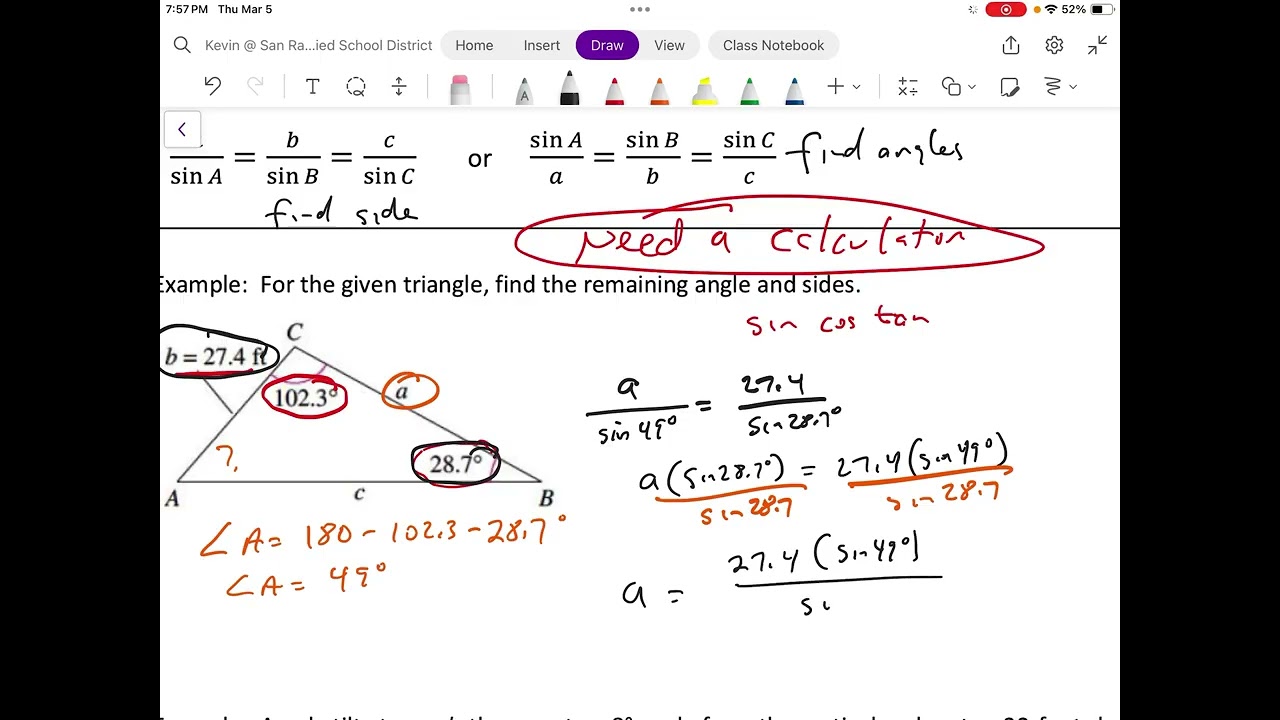 7:57 PM Thu Mar 5
52%
Kevin @ San Ra...ied School District
Home Insert Draw View Class Notebook
sin A = b/sin B = c/sin C or sin A/a = sin B/b = sin C/c find angles
find side
Need a calculator
Example: For the given triangle, find the remaining angle and sides.
sin cos tan
C
b = 27.4 ft
102.3°
a
?
28.7°
A
c
B
∠A = 180 - 102.3 - 28.7°
∠A = 49°
a/sin 49° = 27.4/sin 28.7°
a(sin 28.7°)/sin 28.7 = 27.4(sin 49°)/sin 28.7
a = 27.4(sin 49°)/si